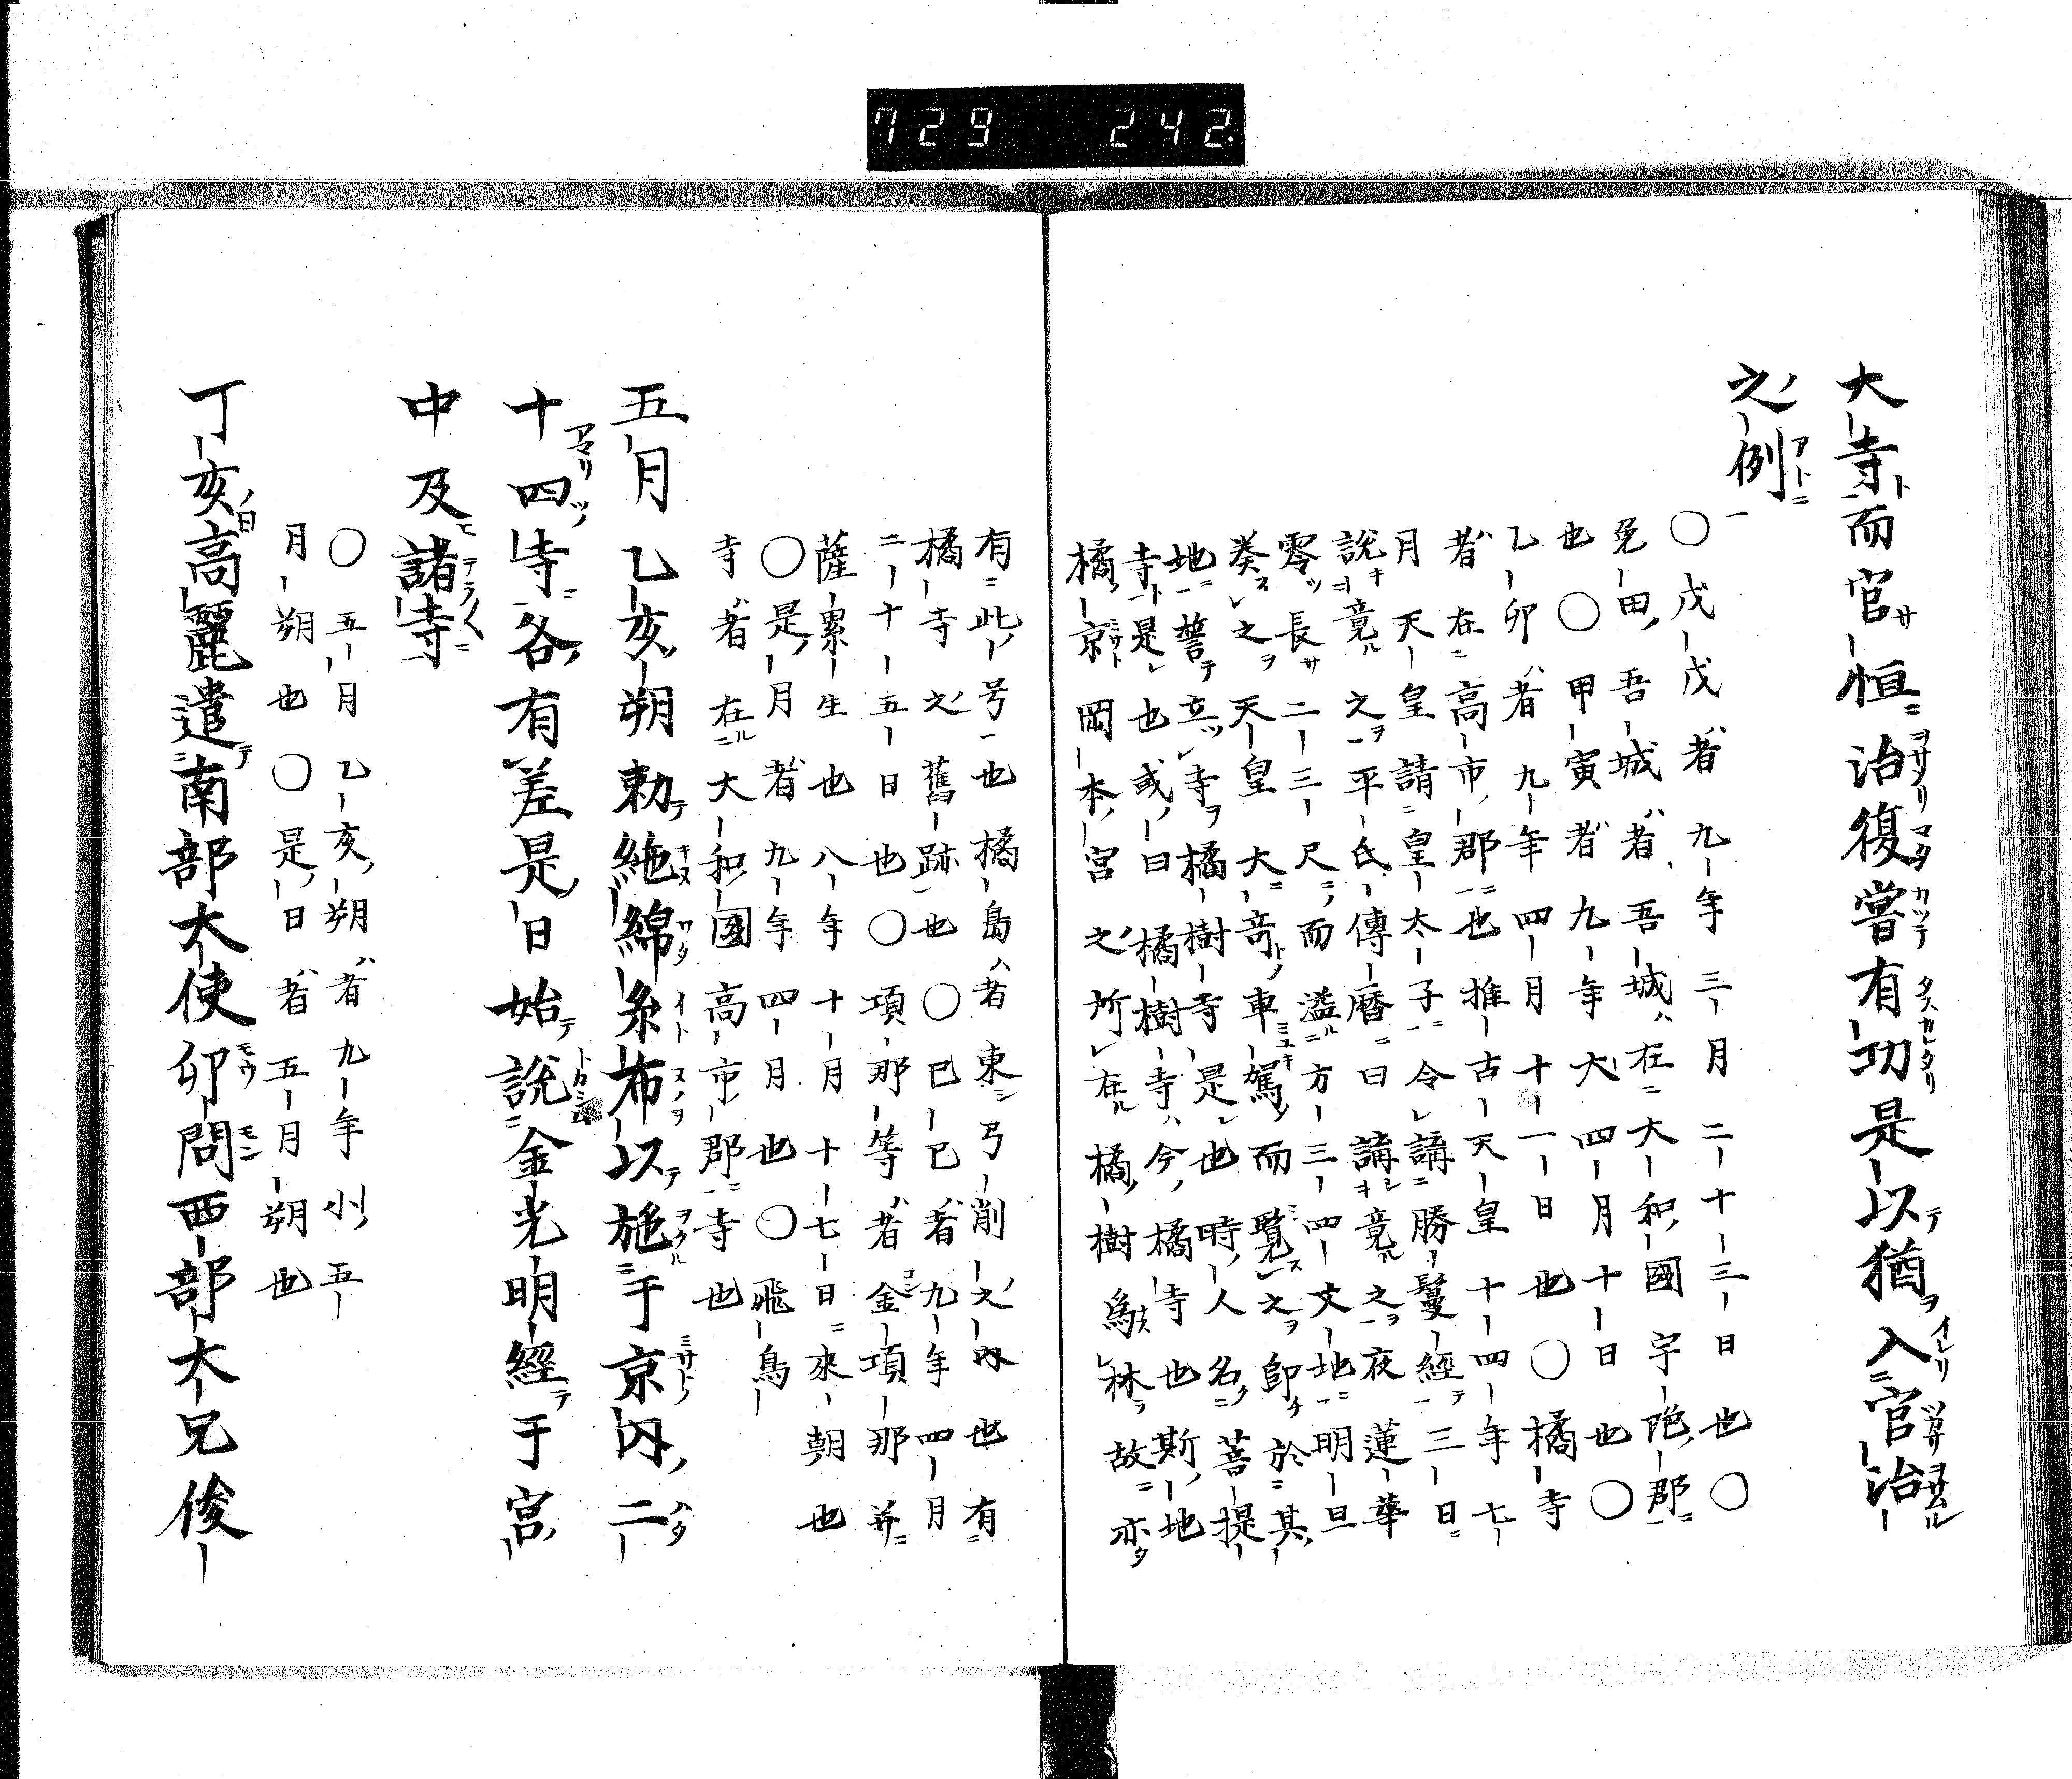 729 242
大寺而官恒治復嘗有功是以猶入官治
之例
〇戊戌者九年三月二十三日也〇
免田吾城者吾城在大和國宇陀郡
也〇甲寅者九年大四月十日也〇
乙卯者九年四月十一日也〇橘寺
者在高市郡也推古天皇十四年七
月天皇請皇太子令講勝鬘經三日
說竟之平氏傳曆曰講竟之夜蓮華
零長二三尺而溢方三四丈地明旦
奏之天皇大竒車駕而覽之即於其
地誓立寺橘樹寺是也時人名菩提
寺是也或曰橘樹寺今橘寺也斯地
橘京岡本宮之所在橘樹為林故亦
有此号也橘島者東弓削之内也有
橘寺之舊跡也〇己巳者九年四月
二十五日也〇項那等者金項那并
薩累生也八年十月十七日來朝也
〇是月者九年四月也〇飛鳥
寺者在大和國高市郡寺也
五月乙亥朔勅絁綿糸布以施于京内二
十四寺各有差是日始說金光明經于宮
中及諸寺
〇五月乙亥朔者九年小五
月朔也〇是日者五月朔也
丁亥高麗遣南部大使卯問西部大兄俊